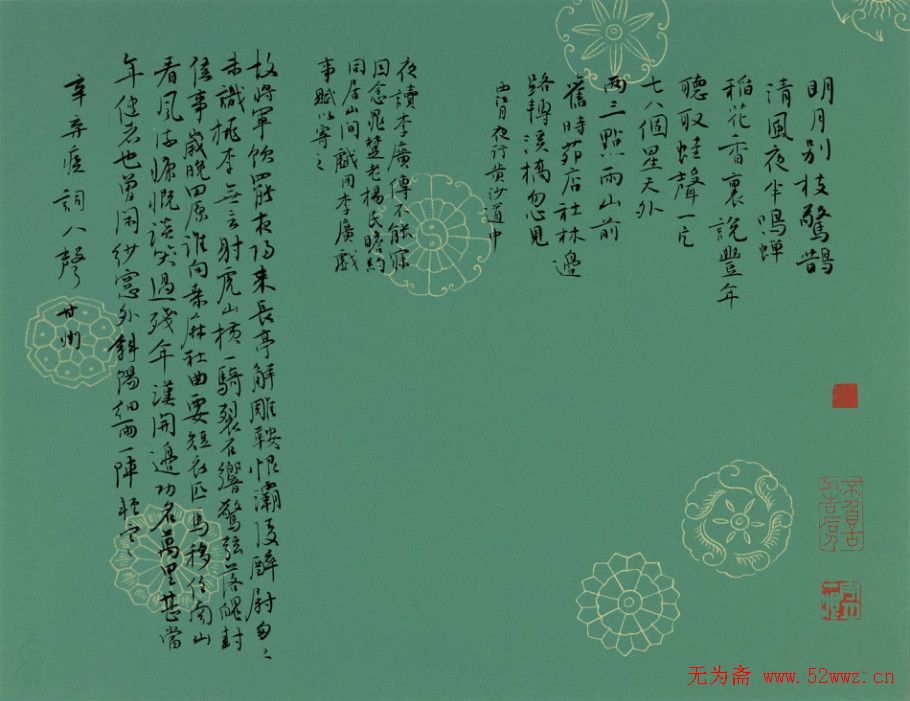 明月別枝驚鵲
清風夜半鳴蟬
稻花香裏說豐年
聽取蛙聲一片
七八個星天外
兩三點雨山前
舊時茆店社林邊
路轉溪橋忽見
西江月夜行黃沙道中
夜讀李廣傳不能寐
因念晁楚老楊民瞻約
同居山間戲用李廣戲
事賦以寄之
故將軍飲罷夜歸來長亭解雕鞍恨灞陵醉尉匆々
未識桃李無言射虎山橫一騎裂石響驚弦落魄封
侯事歲晚田原誰向桑麻杜曲要短衣匹馬移住南山
看風流慷慨談笑過殘年漢開邊功名萬里甚當
年健者也曾閑紗窗外斜陽細雨一陣輕寒
辛弃疾詞八聲甘州
无为斋 www.52wwz.cn